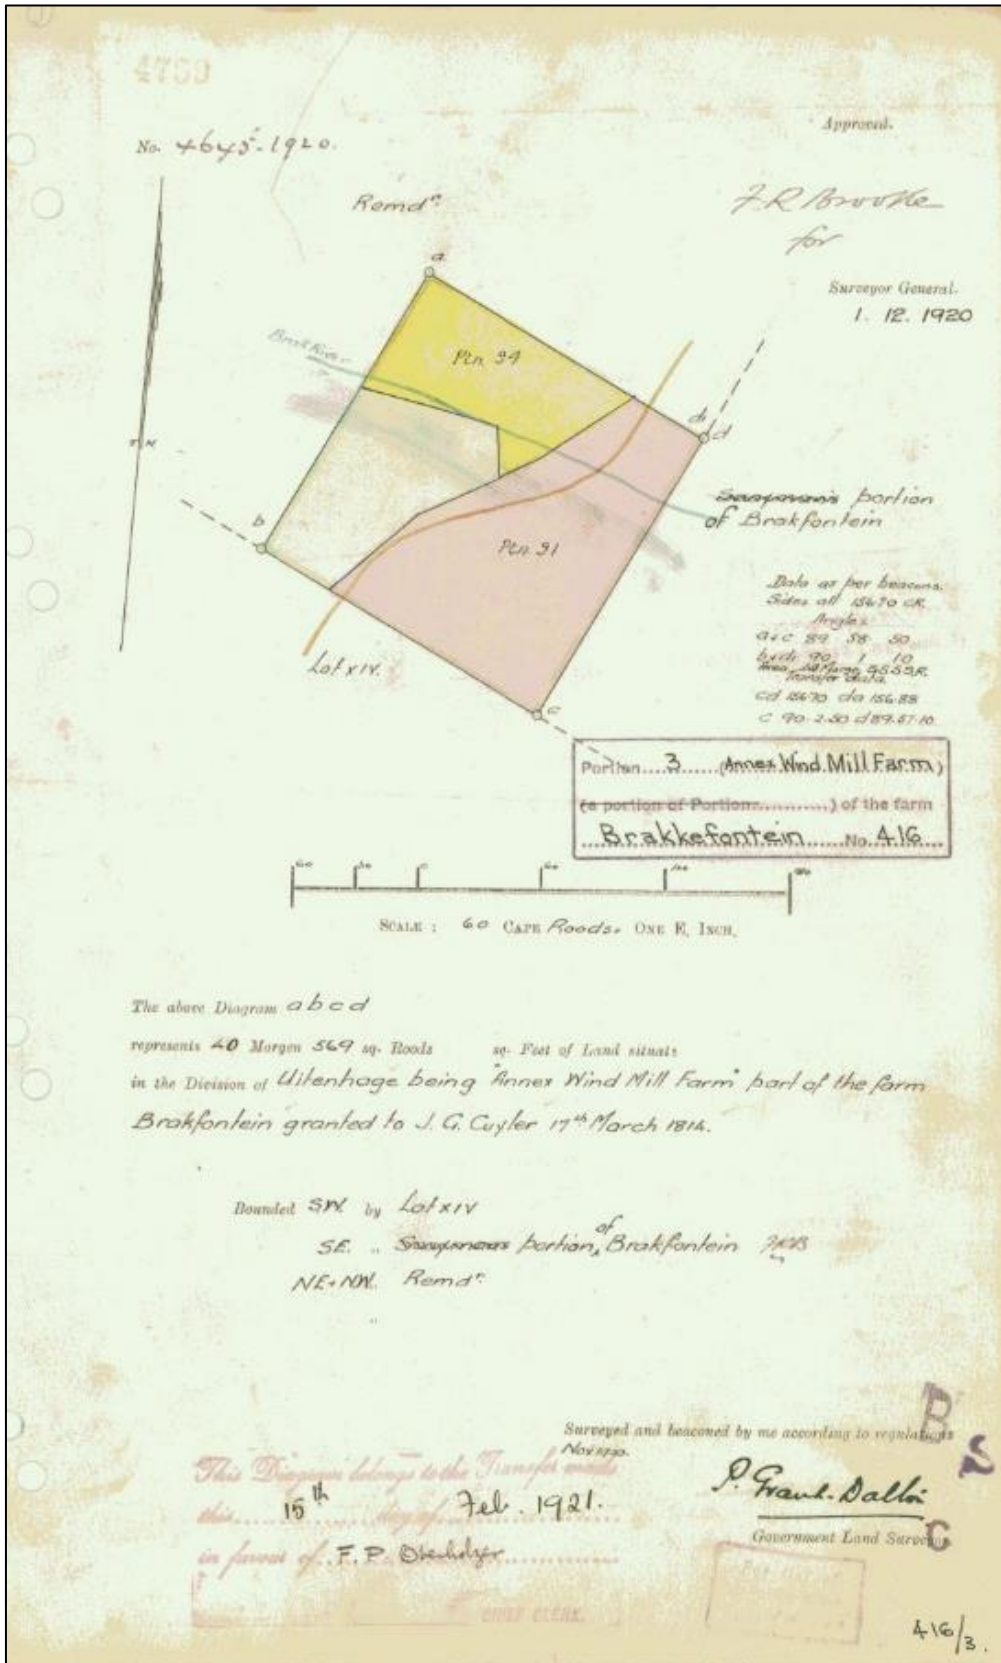 4760
Approved.
No. 4645.1920.
Remdr.
F.R Brooke
for
Surveyor General.
1. 12. 1920
a
Brak River
Ptn. 94
d
portion
of Brakfontein
b
Ptn. 91
Data as per beacons.
Sides all 156.70 CR.
Angles
a+c 89 58 50
b+d 90 1 10
Transfer data
cd 156.70 da 156.88
c 90.2.50 d 89.57.10
Lot XIV.
c
Portion 3 (Annex Wind Mill Farm)
(a portion of Portion ) of the farm
Brakkefontein No. 416
SCALE : 60 CAPE Roods. ONE E. INCH.
The above Diagram a b c d
represents 40 Morgen 569 sq. Roods sq. Feet of Land situate
in the Division of Uitenhage being "Annex Wind Mill Farm" part of the farm
Brakfontein granted to J. G. Cuyler 17th March 1814.
Bounded SW. by Lot XIV
SE. " portion of Brakfontein
NE+NW. Remdr.
"
Surveyed and beaconed by me according to regulations
Nov 1920.
This Diagram belongs to the Transfer made
this 15th day of Feb. 1921.
in favour of F. P Oberholzer
CHIEF CLERK.
Government Land Surveyor
B
S
C
416/3.